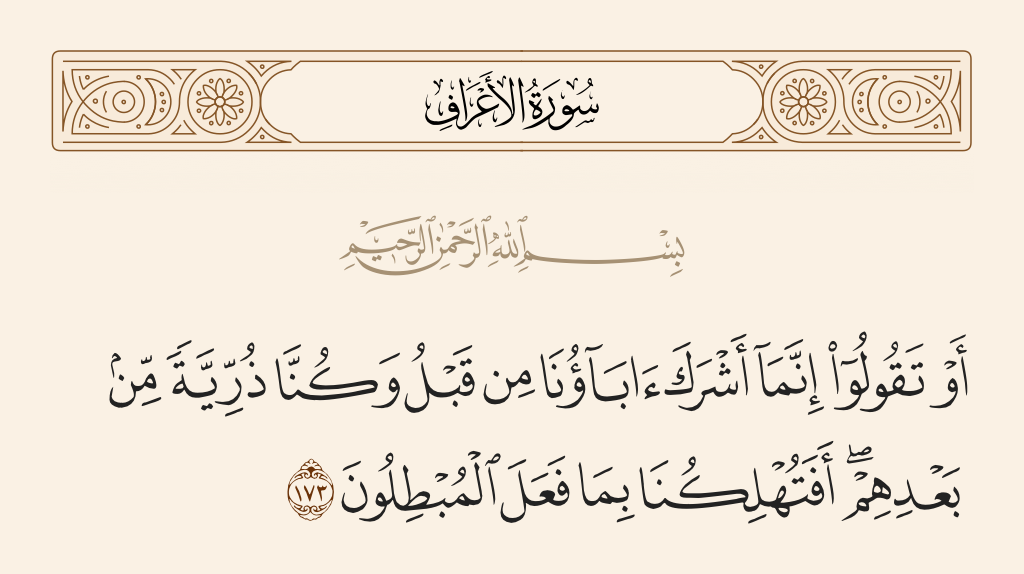 سُورَةُ الأَعْرَافِ
بِسْمِ ٱللَّهِ ٱلرَّحْمَٰنِ ٱلرَّحِيمِ
أَوْ تَقُولُوٓا۟ إِنَّمَآ أَشْرَكَ ءَابَآؤُنَا مِن قَبْلُ وَكُنَّا ذُرِّيَّةً مِّنۢ
بَعْدِهِمْ ۖ أَفَتُهْلِكُنَا بِمَا فَعَلَ ٱلْمُبْطِلُونَ ١٧٣